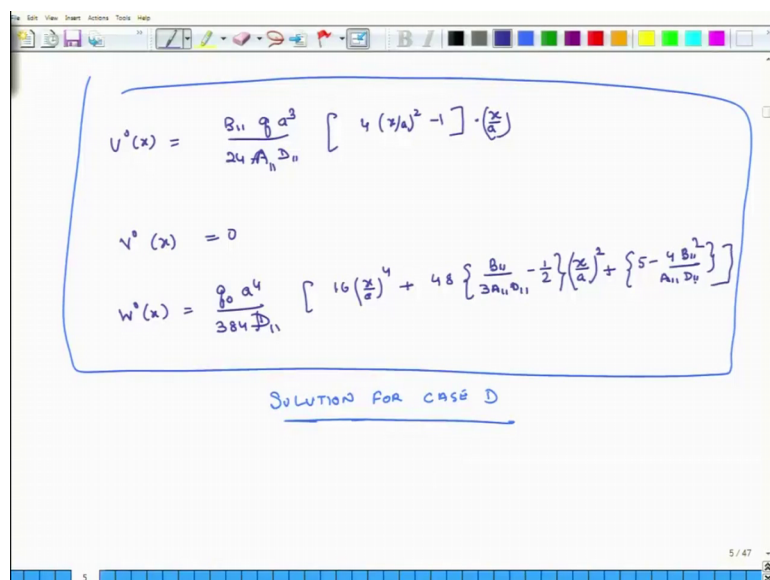 File Edit View Insert Actions Tools Help
B I
U°(x) = B₁₁ q a³ / 24 A₁₁ D₁₁ [ 4 (x/a)² - 1 ] · (x/a)
V°(x) = 0
W°(x) = q₀ a⁴ / 384 D₁₁ [ 16 (x/a)⁴ + 48 { B₁₁ / 3A₁₁ D₁₁ - 1/2 } (x/a)² + { 5 - 4 B₁₁² / A₁₁ D₁₁ } ]
SOLUTION FOR CASE D
5 / 47
5